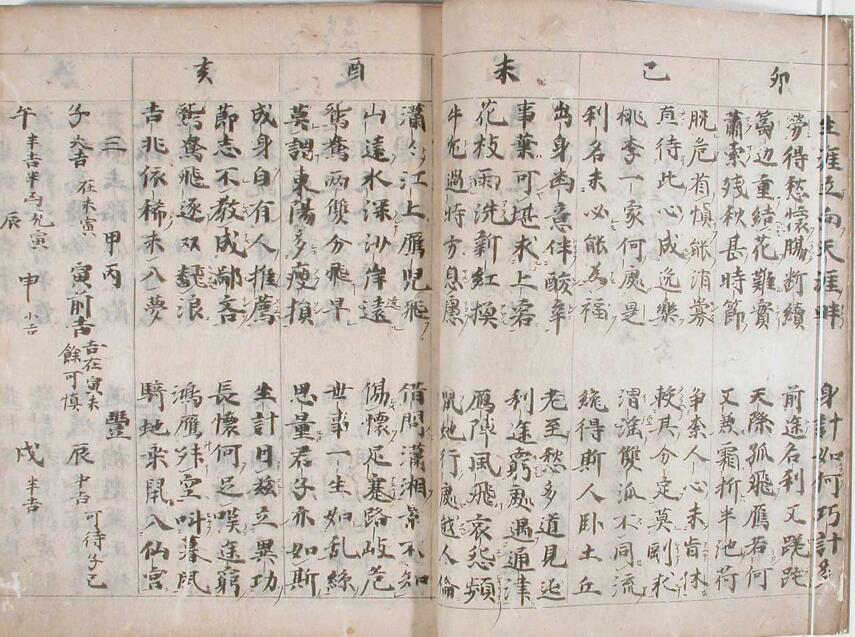 卯
巳
未
酉
亥
生涯立向天涯畔 身計如何巧計多
勞得愁懷腸斷續 前途名利又蹉跎
邊重結花難實 天際孤飛雁若何
蕭索殘秋甚時節 又兼霜折半池荷
脱危有慎能消寡 争奈人心未肯休
直待此心成逸樂 較其分定莫剛求
桃李一家何處是 渭涇雙派不同流
利名未必能為福 得斯人卧土丘
出身幽意伴酸辛 老至愁多道見迍
事葉可堪求上 利途窮處遇通津
花枝雨洗新紅換 雁陣風飛哀怨頻
牛兒過時方息慮 鼠地行處越人倫
瀟々江上雁兒飛 借問瀟湘景不知
山遠水深沙岸遠 傷懷足蹇路岐危
鴛鴦兩雙分飛早 世事一生如乱絲
莫謂東陽多瘦損 思量君子亦如斯
成身自有人推薦 生計日茲立異功
節志不教成鄙吝 長懷何足嘆途窮
鴛鴦飛逐双翻浪 鴻雁空叫暮風
吉兆依稀未八夢 騎地乘鼠入仙宮
三 甲丙 豐
子大吉 在未寅 寅前吉 吉在寅未 餘可慎 辰中吉 可待子巳
午半吉半凶 寅辰 申小吉 戌半吉